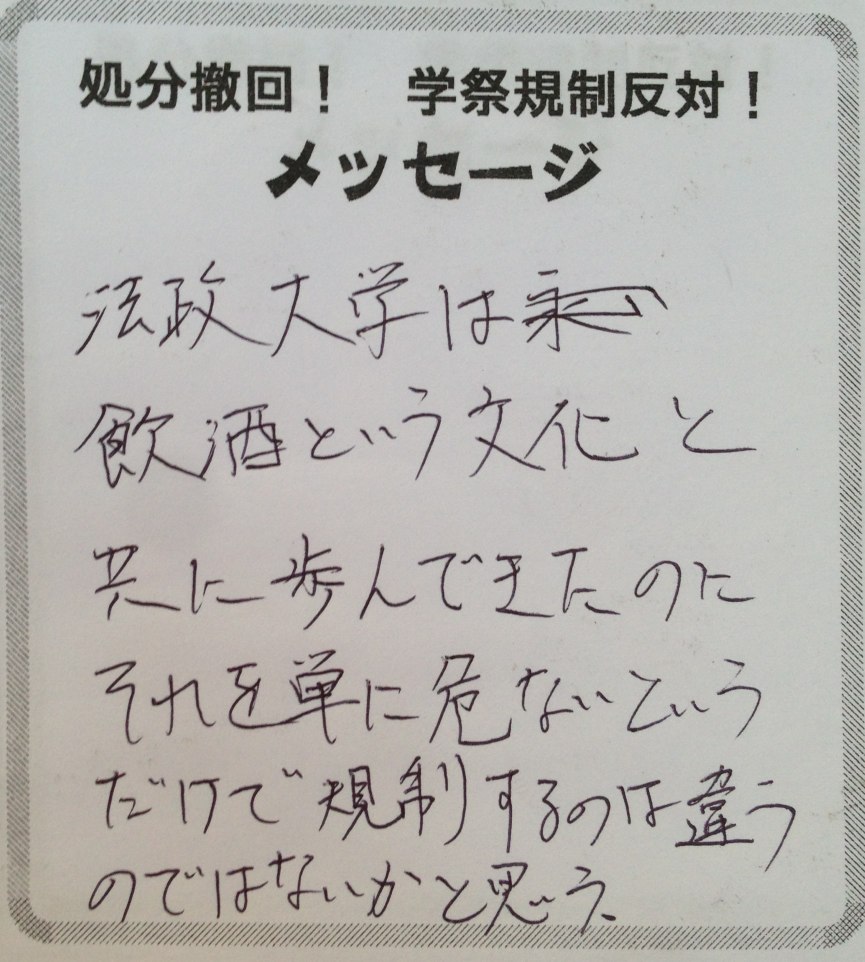 処分撤回！　学祭規制反対！
メッセージ
法政大学は
飲酒という文化と
共に歩んできたのに
それを単に危ないという
だけで規制するのは違う
のではないかと思う、